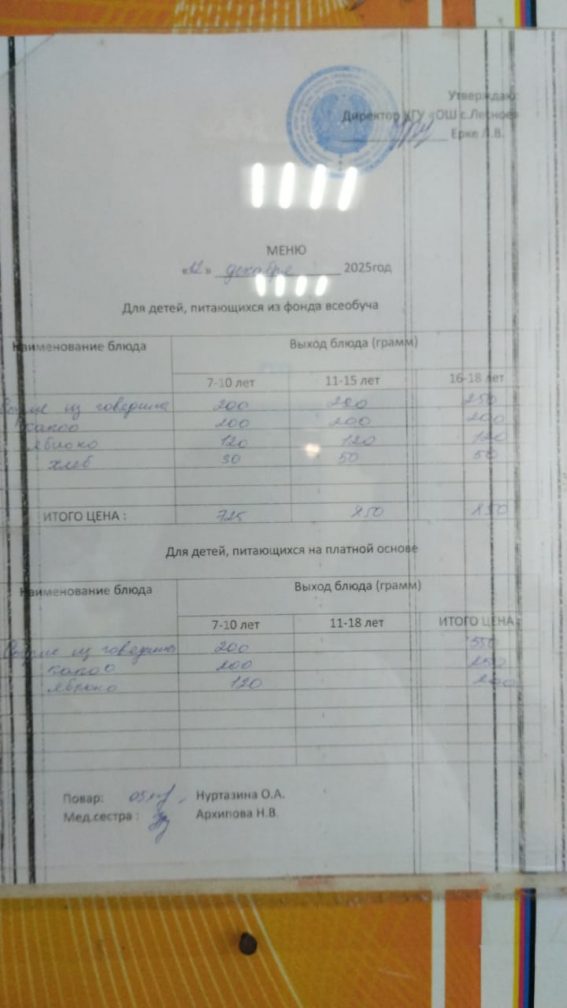 Утверждаю:
Директор КГУ «ОШ с.Лесное»
Ерке Л.В.
МЕНЮ
«12» декабря 2025год
Для детей, питающихся из фонда всеобуча
Наименование блюда Выход блюда (грамм)
7-10 лет 11-15 лет 16-18 лет
из говядины 200 250
какао 200 200 200
яблоко 120 120 120
хлеб 30 50 50
ИТОГО ЦЕНА : 725 850 850
Для детей, питающихся на платной основе
Наименование блюда Выход блюда (грамм)
7-10 лет 11-18 лет ИТОГО ЦЕНА:
из говядины 200 550
какао 200
яблоко 120 200
Повар: Нуртазина О.А.
Мед.сестра : Архипова Н.В.